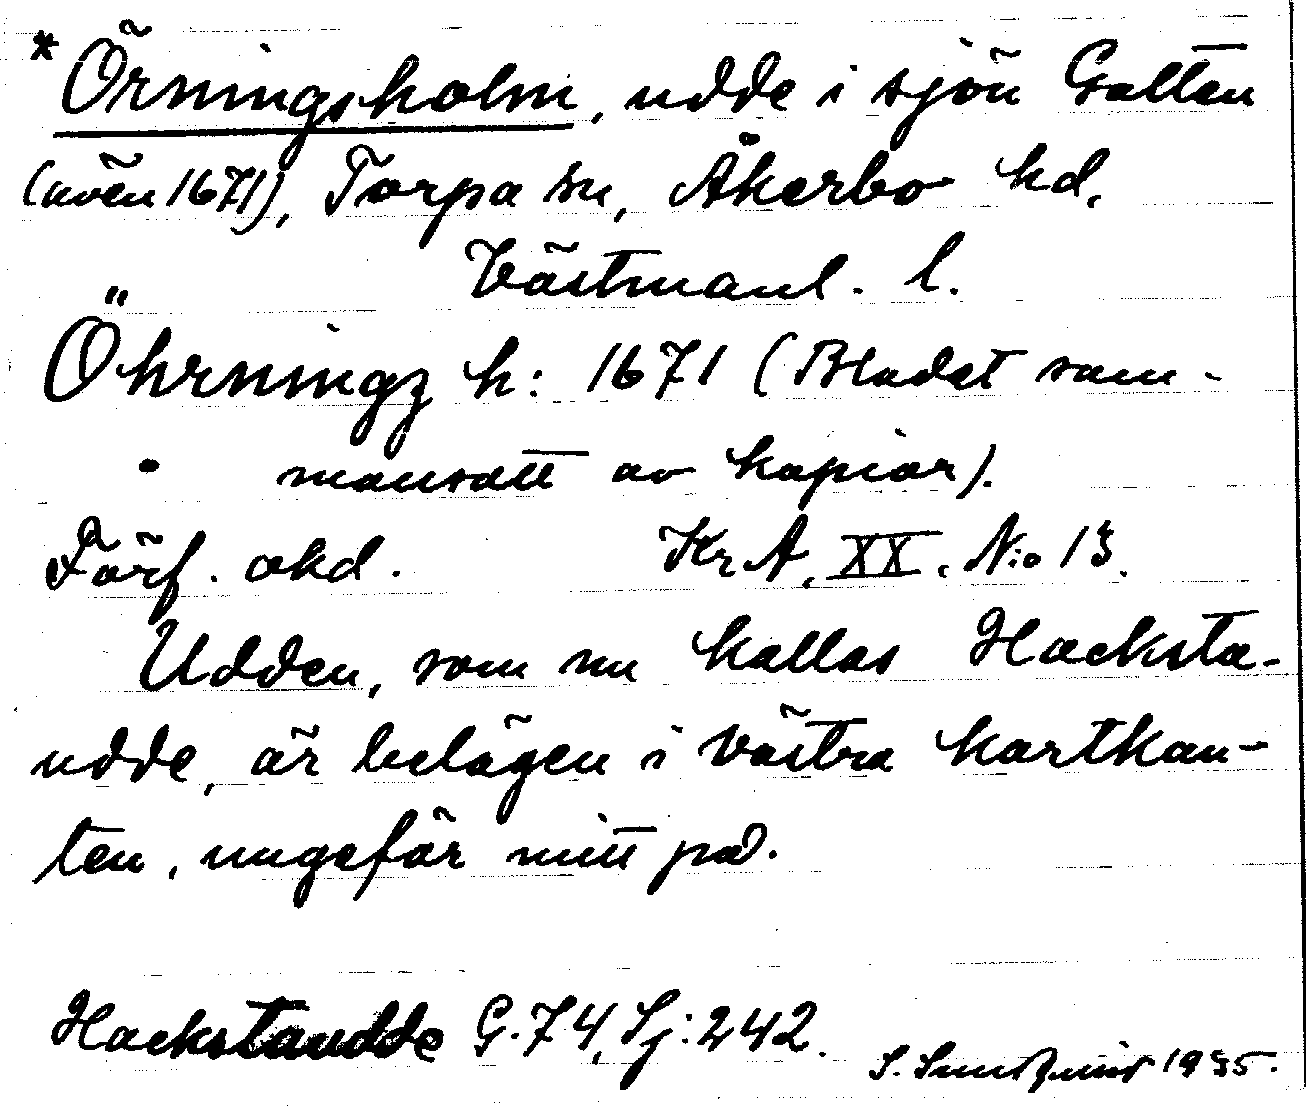 * Örningsholm, udde i sjön Galten
(även 1671), Torpa sn, Åkerbo hd,
Västmanl. l.
Öhrningz h: 1671 (Bladet sam-
mansatt av kopior).
Förf. okd. KrA, XX, N:o 13.
Udden, som nu kallas Hacksta-
udde, är belägen i västra kartkan-
ten, ungefär mitt på.
Hackstaudde G. 74, Sj: 242.
S. 1935.